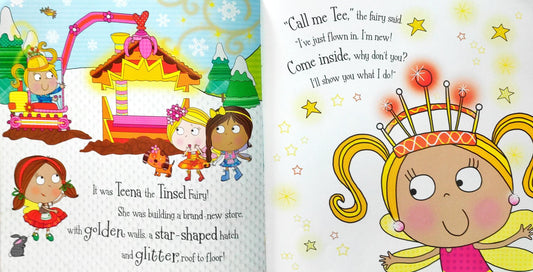 It was Teena the Tinsel Fairy!
She was building a brand-new store,
with golden walls, a star-shaped hatch
and glitter, roof to floor!
"Call me Tee," the fairy said.
"I've just flown in. I'm new!
Come inside, why don't you?
I'll show you what I do!"